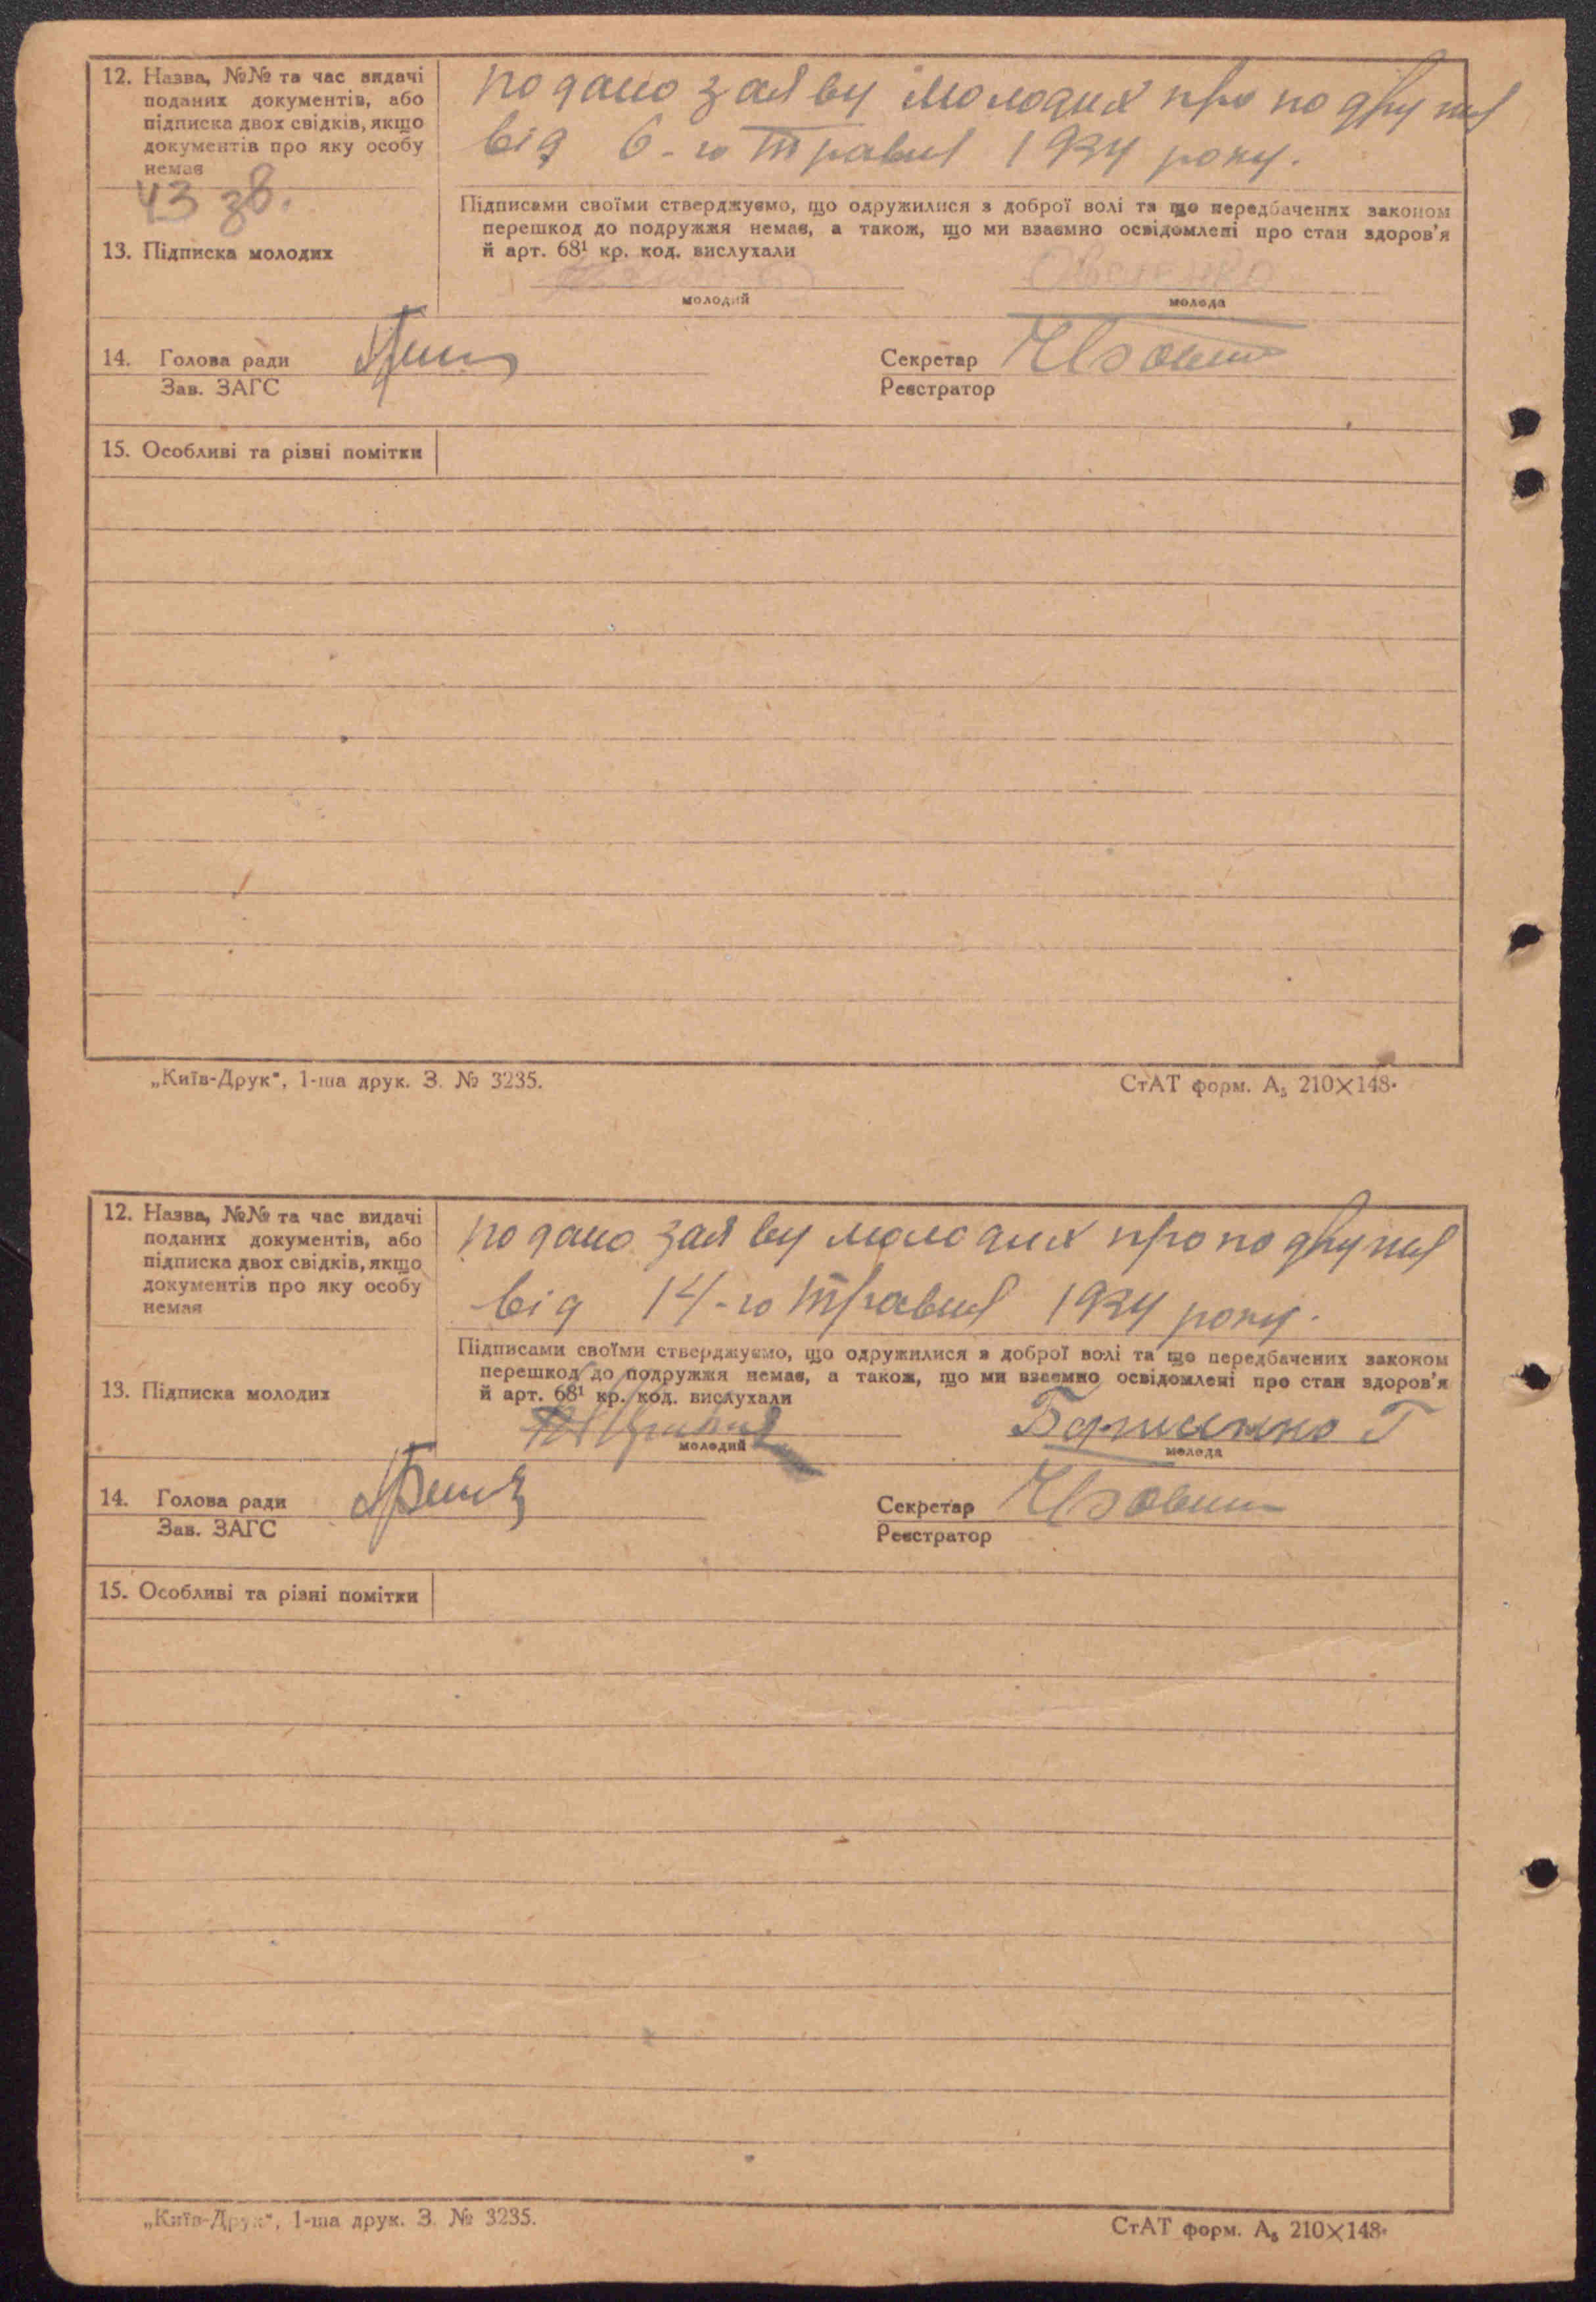 12. Назва, №№ та час видачі
поданих документів, або
підписка двох свідків, якщо
документів про яку особу
немає
подано заяву молодих про подружжя
від 6-го травня 1934 року.
43 зв.
13. Підписка молодих
Підписами своїми стверджуємо, що одружилися з доброї волі та що передбачених законом
перешкод до подружжя немає, а також, що ми взаємно освідомлені про стан здоров'я
й арт. 68¹ кр. код. вислухали
молодий
молода
14. Голова ради
Зав. ЗАГС
Секретар
Реєстратор
15. Особливі та різні помітки
„Київ-Друк", 1-ша друк. З. № 3235.
СтАТ форм. А₅ 210×148.
12. Назва, №№ та час видачі
поданих документів, або
підписка двох свідків, якщо
документів про яку особу
немає
подано заяву молодих про подружжя
від 14-го травня 1934 року.
13. Підписка молодих
Підписами своїми стверджуємо, що одружилися з доброї волі та що передбачених законом
перешкод до подружжя немає, а також, що ми взаємно освідомлені про стан здоров'я
й арт. 68¹ кр. код. вислухали
молодий
молода
14. Голова ради
Зав. ЗАГС
Секретар
Реєстратор
15. Особливі та різні помітки
„Київ-Друк", 1-ша друк. З. № 3235.
СтАТ форм. А₅ 210×148.